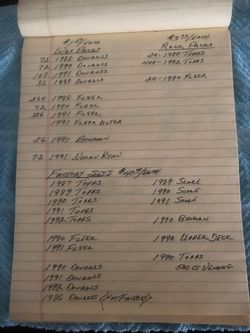 $1.00/EACH $8.00/EACH
WAX PACKS RACK PACKS
72 1988 DONRUSS 24-1988 TOPPS
72 1990 DONRUSS 1992 TOPPS
1991 DONRUSS
36 1988 DONRUSS 24-1990 FLEER
1988 FLEER
72 1990 FLEER
1991 FLEER
1991 FLEER ULTRA
36 1991 BOWMAN
72 1991 NOLAN RYAN
FACTORY SETS EACH
1987 TOPPS 1989 SCORE
1989 TOPPS 1990 SCORE
1990 TOPPS 1991 SCORE
1991 TOPPS
1992 TOPPS 1990 BOWMAN
1990 FLEER 1990 UPPER DECK
1991 FLEER
1990 TOPPS
1990 DONRUSS 500 CT VENDING
1991 DONRUSS
1992 DONRUSS
1986 DONRUSS (NOT FACTORY)